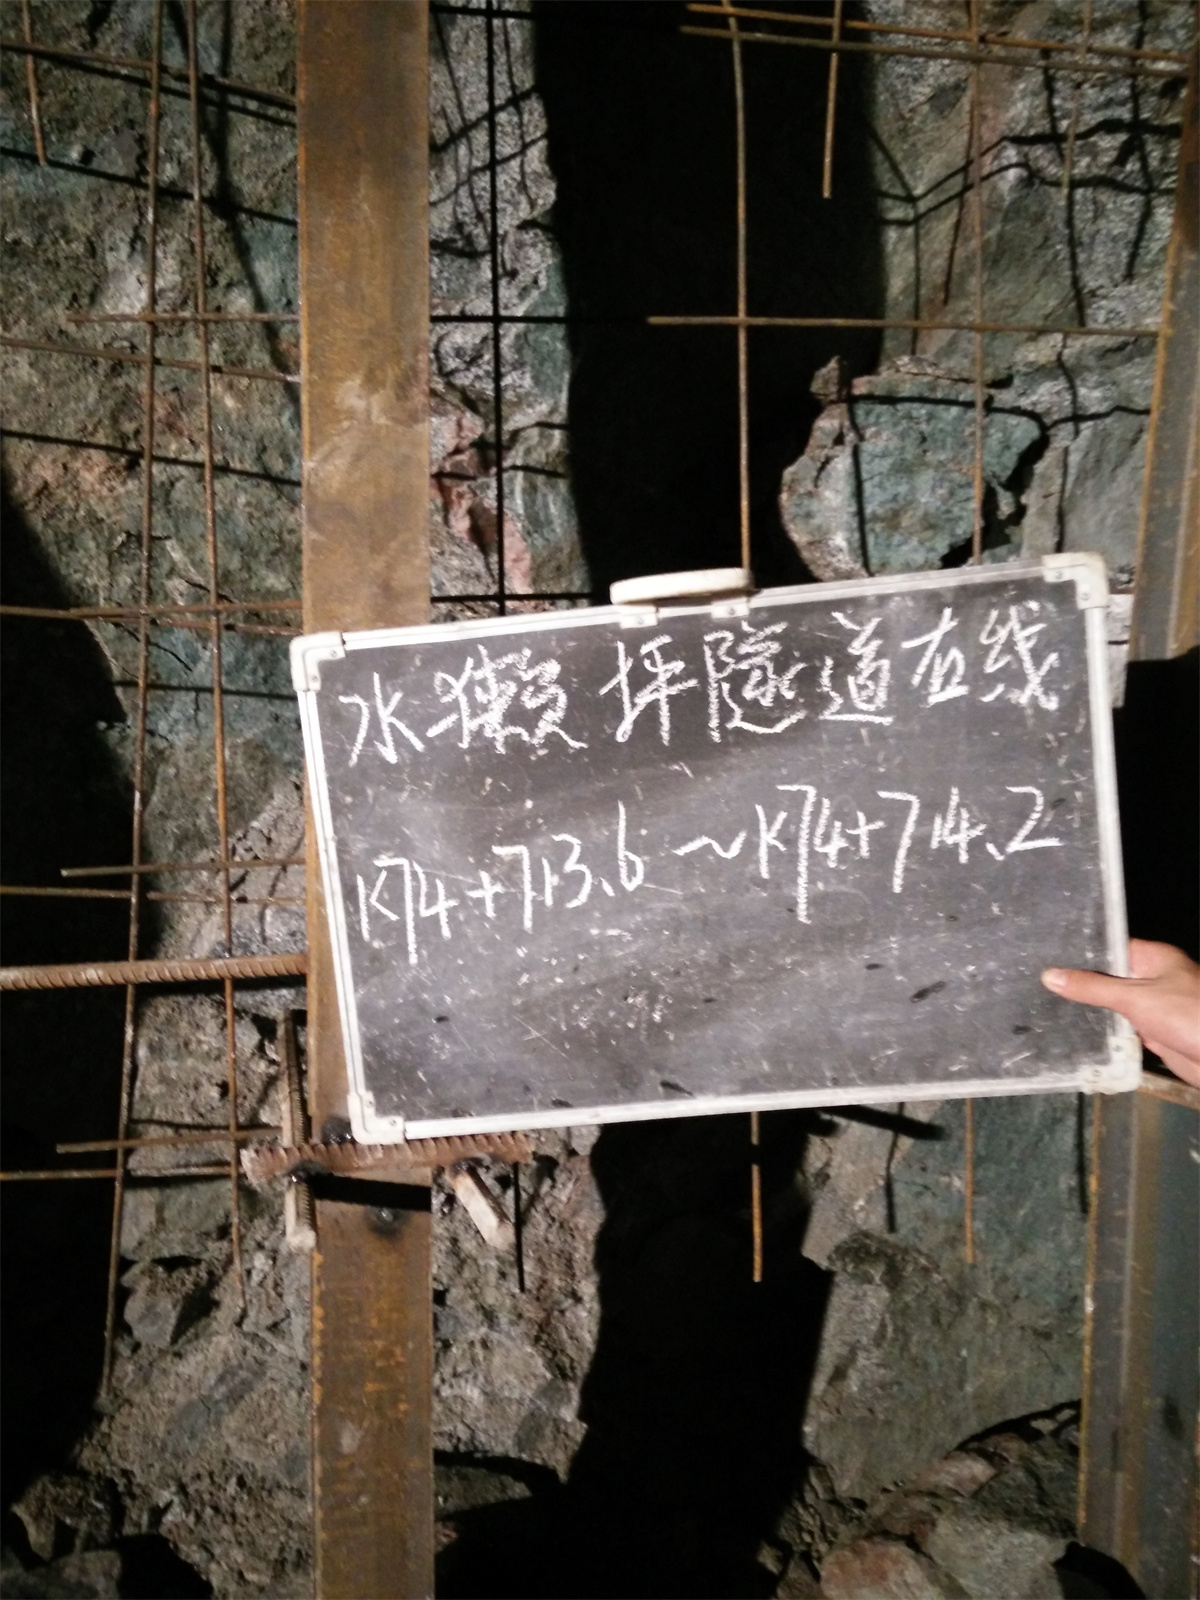 水獭坪隧道右线
K74+713.6～K74+714.2